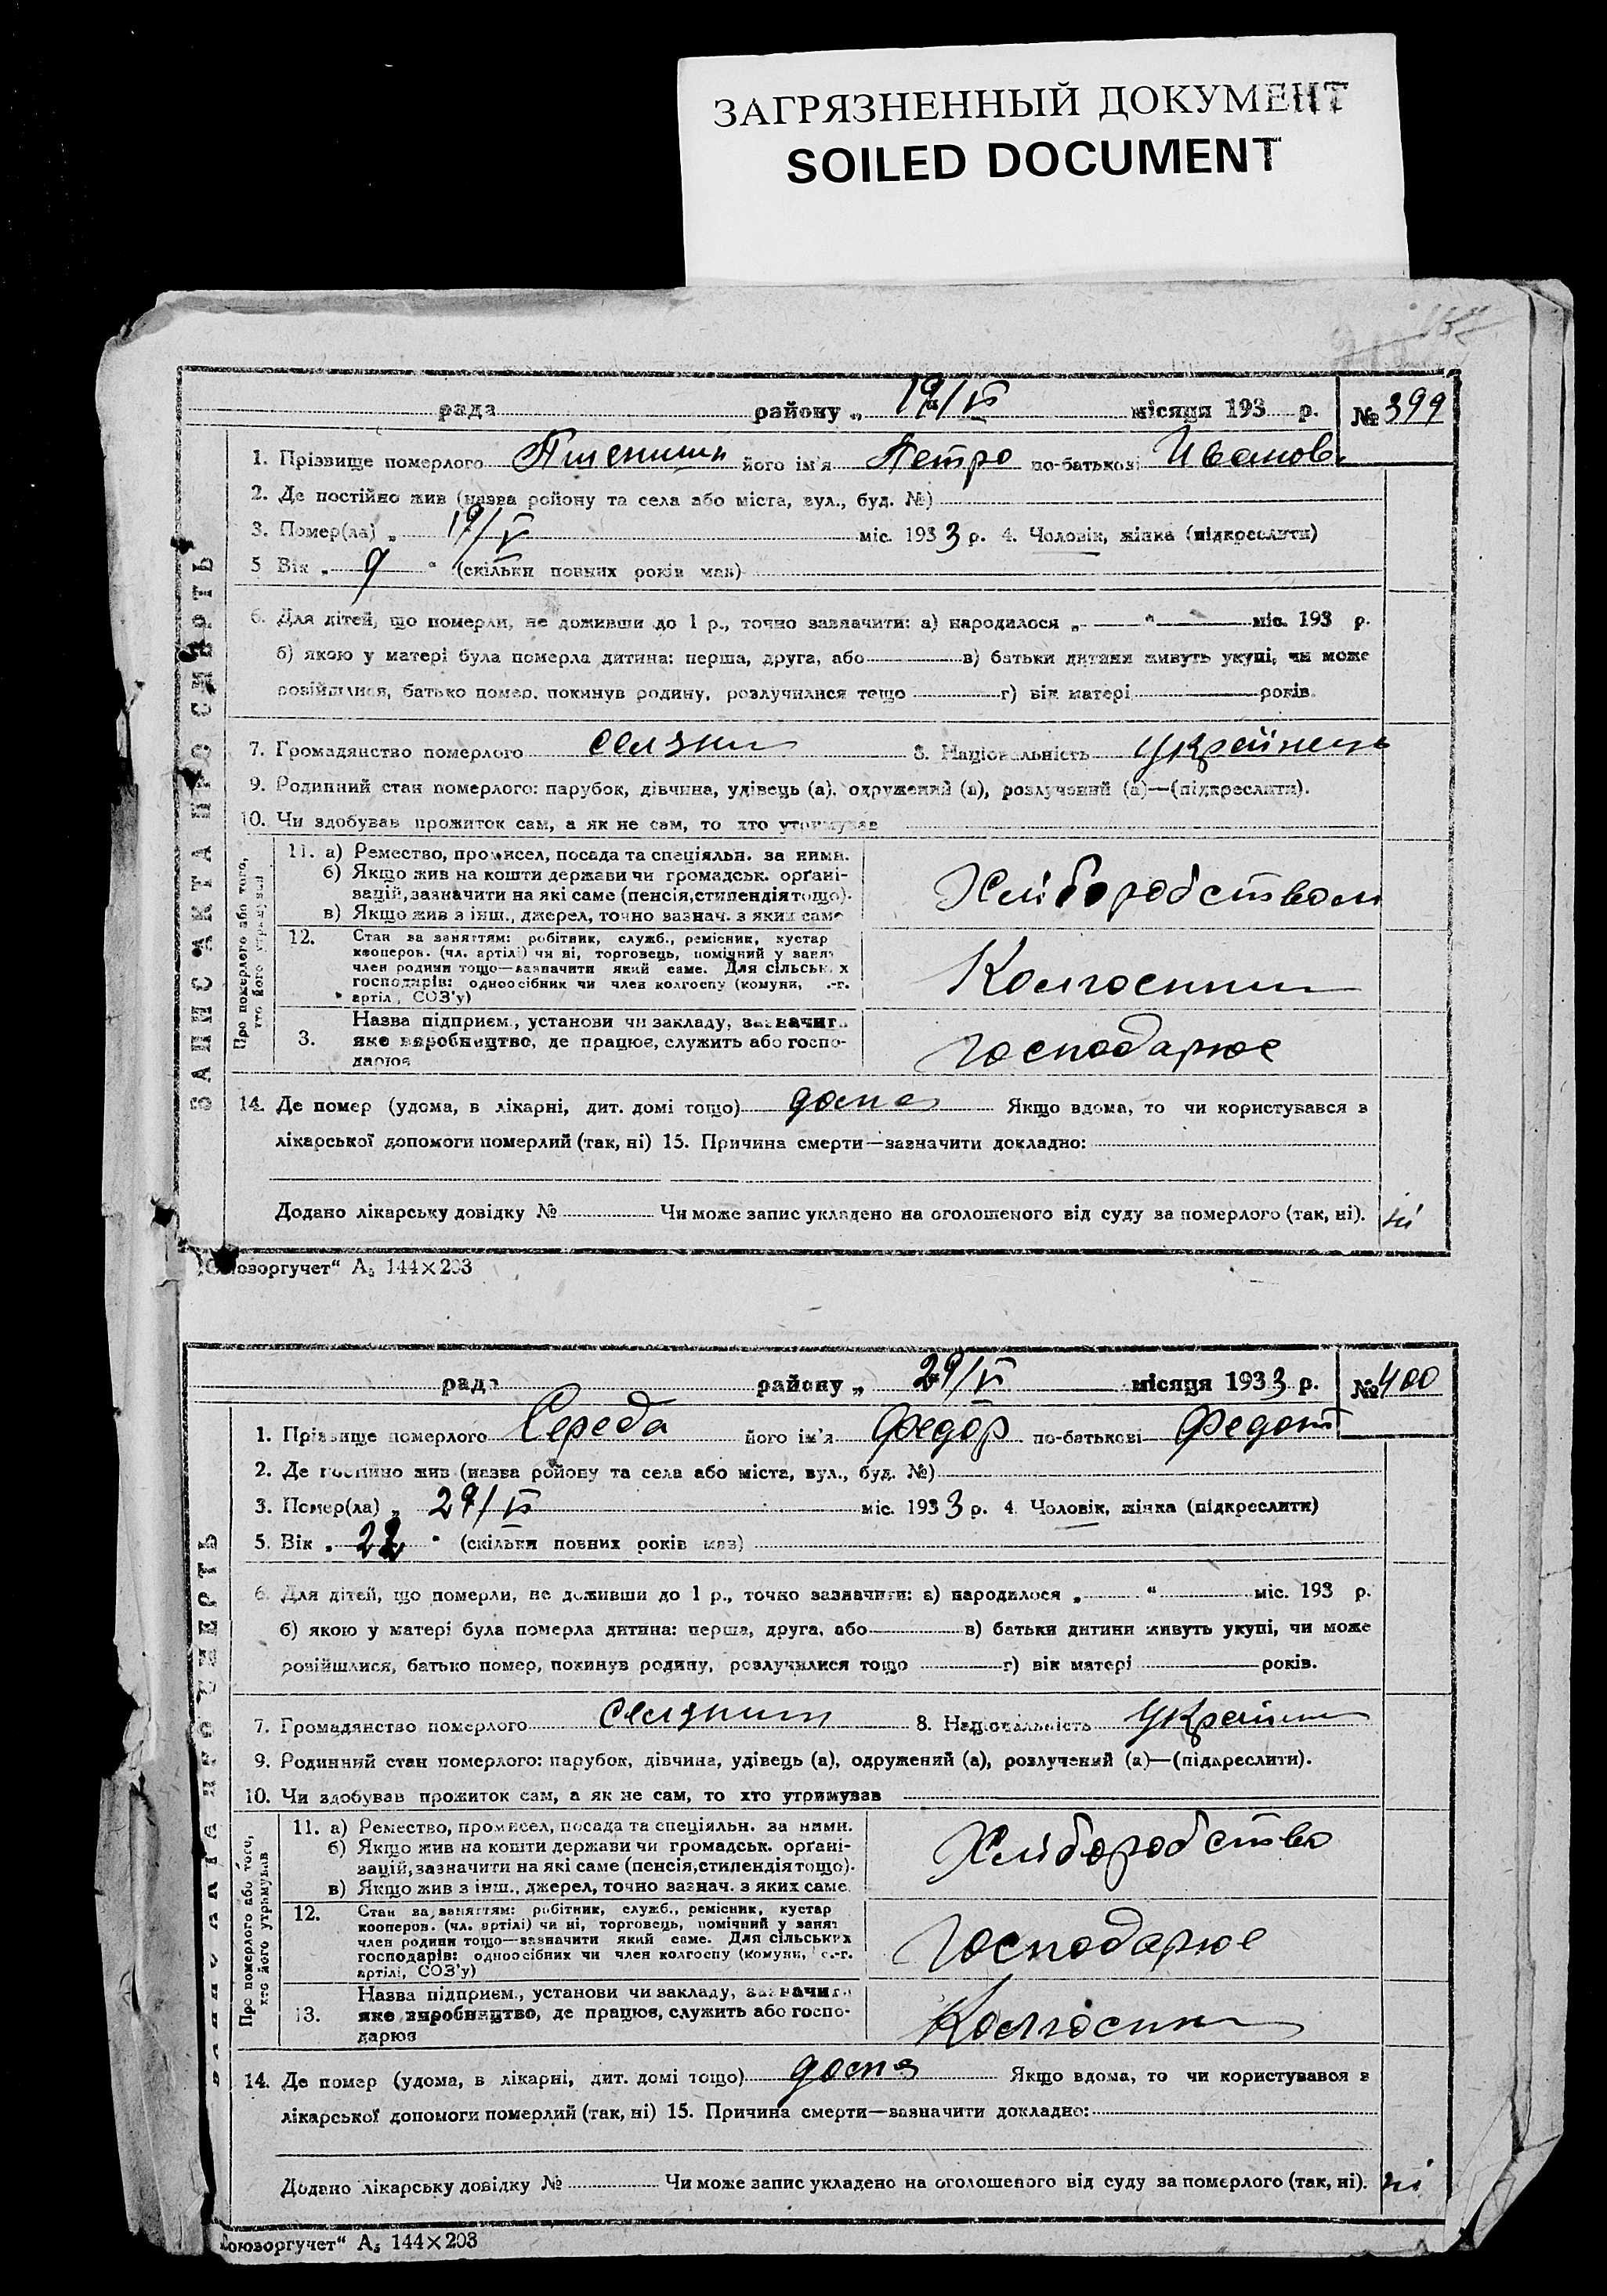 ЗАГРЯЗНЕННЫЙ ДОКУМЕНТ
SOILED DOCUMENT
рада району „ 19/VI місяця 193 р. № 399
1. Прізвище померлого його ім'я Петро по-батькові Иванов.
2. Де постійно жив (назва району та села або міста, вул., буд. №)
3. Помер(ла) „ 19/V міс. 1933 р. 4. Чоловік, жінка (підкреслити)
5 Вік „ 9 " (скільки повних років мав)
6. Для дітей, що померли, не доживши до 1 р., точно зазначити: а) народилося „ — “ — міс. 193 р.
б) якою у матері була померла дитина: перша, друга, або — в) батьки дитини живуть укупі, чи може
розійшлися, батько помер, покинув родину, розлучилися тощо — г) вік матері — років.
7. Громадянство померлого селянин 8. Національність Українець
9. Родинний стан померлого: парубок, дівчина, удівець (а), одружений (а), розлучений (а)—(підкреслити).
10. Чи здобував прожиток сам, а як не сам, то хто утримував
ЗАПИС АКТА ПРО СМЕРТЬ
Про померлого або того, хто його утримував
11. а) Ремество, промисел, посада та спеціяльн. за ними.
б) Якщо жив на кошти держави чи громадськ. органі-
зацій, зазначити на які саме (пенсія, стипендія тощо).
в) Якщо жив з інш., джерел, точно зазнач. з яких саме
Хліборобством
12. Стан за заняттям: робітник, служб., ремісник, кустар
кооперов. (чл. артілі) чи ні, торговець, помічний у занят
член родини тощо—зазначити який саме. Для сільських
господарів: одноосібник чи член колгоспу (комуни, с.-г.
артіл., СОЗ'у)
Колгоспник
3. Назва підприєм., установи чи закладу, зазначити
яке виробництво, де працює, служить або госпо-
дарює
Господарює
14. Де помер (удома, в лікарні, дит. домі тощо) дома Якщо вдома, то чи користувався з
лікарської допомоги померлий (так, ні) 15. Причина смерти—зазначити докладно:
Додано лікарську довідку № Чи може запис укладено на оголошеного від суду за померлого (так, ні). ні
„Союзоргучет“ А₅ 144×203
рада району „ 29/VI місяця 1933 р. № 400
1. Прізвище померлого Середа його ім'я Федор по-батькові Федот
2. Де постійно жив (назва району та села або міста, вул., буд. №)
3. Помер(ла) „ 29/VI міс. 1933 р. 4. Чоловік, жінка (підкреслити)
5. Вік „ 22 " (скільки повних років мав)
6. Для дітей, що померли, не доживши до 1 р., точно зазначити: а) народилося „ “ міс. 193 р.
б) якою у матері була померла дитина: перша, друга, або в) батьки дитини живуть укупі, чи може
розійшлися, батько помер, покинув родину, розлучилися тощо г) вік матері років.
7. Громадянство померлого селянин 8. Національність Україн
9. Родинний стан померлого: парубок, дівчина, удівець (а), одружений (а), розлучений (а)—(підкреслити).
10. Чи здобував прожиток сам, а як не сам, то хто утримував
ЗАПИС АКТА ПРО СМЕРТЬ
Про померлого або того, хто його утримував
11. а) Ремество, промисел, посада та спеціяльн. за ними.
б) Якщо жив на кошти держави чи громадськ. органі-
зацій, зазначити на які саме (пенсія, стипендія тощо).
в) Якщо жив з інш., джерел, точно зазнач. з яких саме.
Хліборобство
12. Стан за заняттям: робітник, служб., ремісник, кустар
кооперов. (чл. артілі) чи ні, торговець, помічний у занят
член родини тощо—зазначити який саме. Для сільських
господарів: одноосібник чи член колгоспу (комуни, с.-г.
артілі, СОЗ'у)
Господарює
13. Назва підприєм., установи чи закладу, зазначити
яке виробництво, де працює, служить або госпо-
дарює
Колгоспник
14. Де помер (удома, в лікарні, дит. домі тощо) дома Якщо вдома, то чи користувався з
лікарської допомоги померлий (так, ні) 15. Причина смерти—зазначити докладно:
Додано лікарську довідку № Чи може запис укладено на оголошеного від суду за померлого (так, ні). ні
„Союзоргучет“ А₅ 144×203